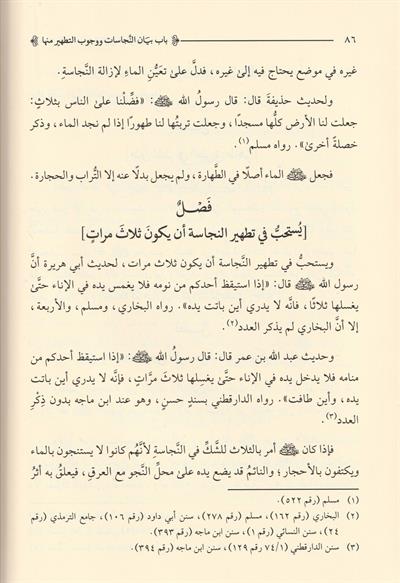 ٨٦ ﴿ باب بيان النَّجاسات ووجوب التطهير منها ﴾
غيره في موضع يحتاج فيه إلى غيره، فدلَّ على تعَيُّنِ الماءِ لإزالة النَّجاسةِ.
ولحديث حذيفةَ قال: قال رسولُ الله ﷺ: «فضِّلْنا على الناس بثلاثٍ:
جعلت لنا الأرض كلُّها مسجدًا، وجعلت تربتُها لنا طهورًا إذا لم نجد الماء، وذكر
خصلةً أخرىٰ». رواه مسلم(١).
فجعل ﷺ الماء أصلًا في الطَّهارة، ولم يجعل بدلًا عنه إلا التُّراب والحجارة.
فَصْلٌ
[يُستحبُّ في تطهير النجاسة أن يكونَ ثلاثَ مراتٍ]
ويستحبُّ في تطهير النَّجاسة أن يكون ثلاث مرات، لحديث أبي هريرة أنَّ
رسول الله ﷺ قال: «إذا استيقظ أحدكم من نومه فلا يغمس يده في الإناء حتَّىٰ
يغسلها ثلاثًا، فانَّه لا يدري أين باتت يده». رواه البخاري، ومسلم، والأربعة،
إلا أنَّ البخاري لم يذكر العدد(٢).
وحديث عبد الله بن عمر قال: قال رسولُ الله ﷺ: «إذا استيقظ أحدكم من
منامه فلا يدخل يده في الإناء حتَّىٰ يغسِلها ثلاثَ مرَّاتٍ، فإنَّه لا يدري أين باتت
يده، وأين طافت». رواه الدارقطني بسندٍ حسنٍ، وهو عند ابن ماجه بدون ذِكْرِ
العدد(٣).
فإذا كان ﷺ أمر بالثلاث للشكِّ في النَّجاسة لأنَّهم كانوا لا يستنجون بالماء
ويكتفون بالأحجار؛ والنائمُ قد يضع يده على محلِّ النَّجوِ مع العرقِ، فيعلقُ به أثرُ
(١) مسلم (رقم ٥٢٢).
(٢) البخاري (رقم ١٦٢)، مسلم (رقم ٢٧٨)، سنن أبي داود (رقم ١٠٦)، جامع الترمذي (رقم
٢٤)، سنن النسائي (رقم ١)، سنن ابن ماجه (رقم ٣٩٣).
(٣) سنن الدارقطني (٧٤/١ رقم ١٢٩)، سنن ابن ماجه (رقم ٣٩٤).